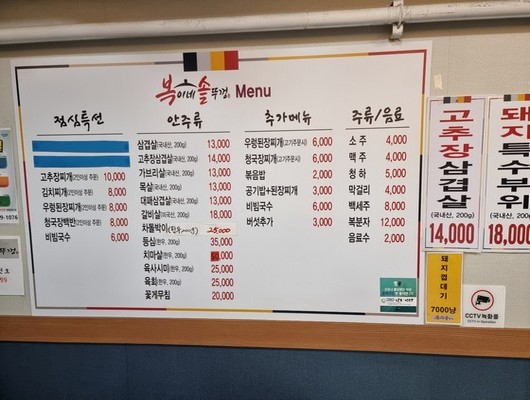 복이네솥뚜껑 Menu
점심특선
고추장찌개(2인이상 주문) 10,000
김치찌개(2인이상 주문) 8,000
우렁된장찌개(2인이상 주문) 8,000
청국장백반(2인이상 주문) 8,000
비빔국수 6,000
안주류
삼겹살(국내산, 200g) 13,000
고추장삼겹살(국내산, 200g) 14,000
가브리살(국내산, 200g) 13,000
목살(국내산, 200g) 13,000
대패삼겹살(국내산, 200g) 13,000
갈비살(미국산, 200g) 18,000
차돌박이 25,000
등심(한우, 200g) 35,000
치마살(한우, 200g)
육사시미(한우, 200g) 25,000
육회(한우, 200g) 25,000
꽃게무침 20,000
추가메뉴
우렁된장찌개(고기주문시) 6,000
청국장찌개(고기주문시) 6,000
볶음밥 2,000
공기밥+된장찌개 3,000
비빔국수 6,000
버섯추가 3,000
주류/음료
소주 4,000
맥주 4,000
청하 5,000
막걸리 4,000
백세주 8,000
복분자 12,000
음료수 2,000
고추장삼겹살
(국내산, 200g)
14,000
돼지특수부위
(국내산, 200g)
18,000
돼지껍데기
7000냥
CCTV 녹화중